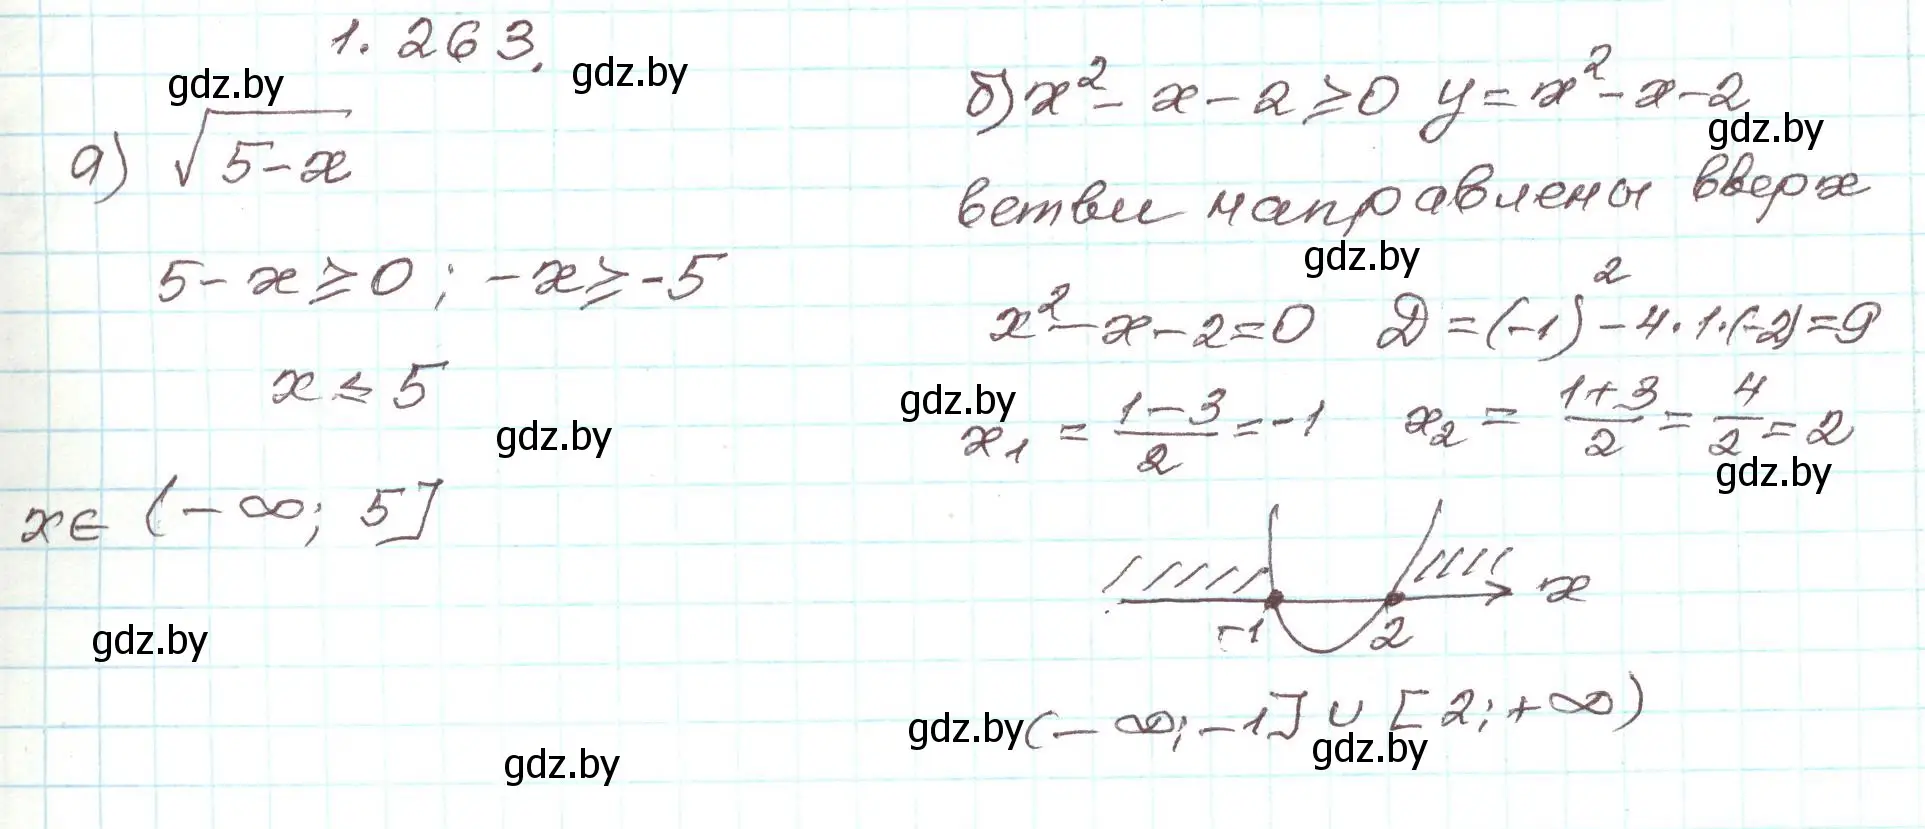 1.263.
gdz.by
gdz.by
а) √5-x
5-x≥0; -x≥-5
x≤5
gdz.by
x∈ (-∞; 5]
gdz.by
gdz.by
б) x²-x-2≥0 y=x²-x-2
gdz.by
ветви направлены вверх
gdz.by
x²-x-2=0 D=(-1)²-4·1·(-2)=9
gdz.by
x₁ = (1-3)/2 = -1 x₂ = (1+3)/2 = 4/2 = 2
gdz.by
x
-1 2
gdz.by
(-∞; -1] ∪ [2; +∞)
gdz.by